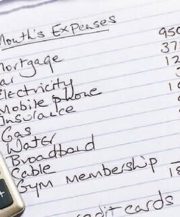 Month's Expenses
Mortgage 950
ar 37
Electricity 12
Mobile phone
Insurance
Gas
Water
Broadband
Cable
Gym Membership
redit cards